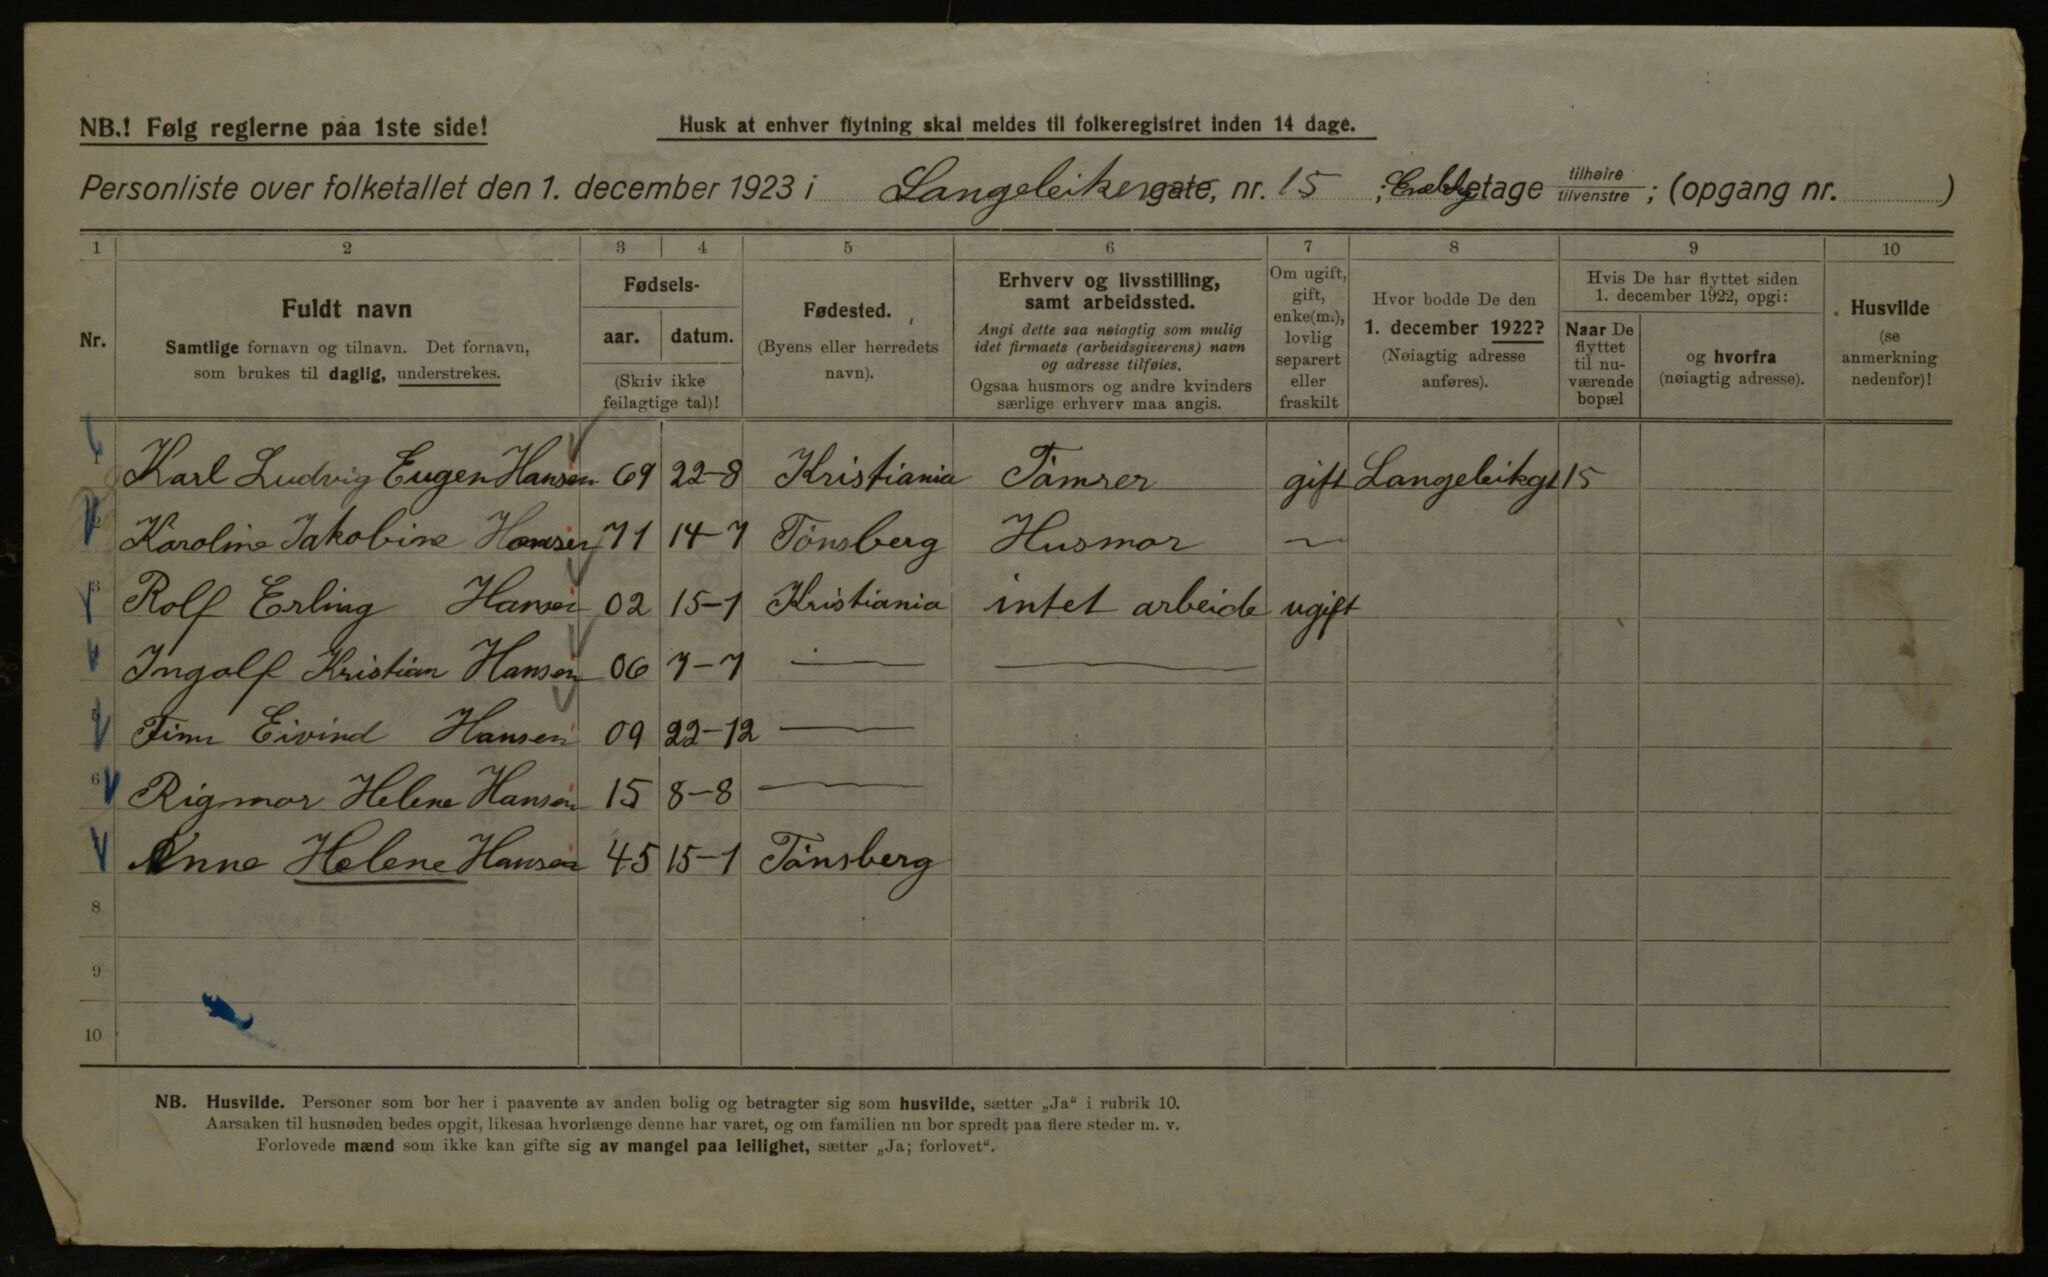 NB.! Følg reglerne paa 1ste side!
Husk at enhver flytning skal meldes til folkeregistret inden 14 dage.
Personliste over folketallet den 1. december 1923 i Langeleikengate, nr. 15 ; etage tilhøire tilvenstre ; (opgang nr. )
1 2 3 4 5 6 7 8 9 10
Nr.
Fuldt navn
Samtlige fornavn og tilnavn. Det fornavn,
som brukes til daglig, understrekes.
Fødsels-
aar. datum.
(Skriv ikke
feilagtige tal)!
Fødested.
(Byens eller herredets
navn).
Erhverv og livsstilling,
samt arbeidssted.
Angi dette saa nøiagtig som mulig
idet firmaets (arbeidsgiverens) navn
og adresse tilføies.
Ogsaa husmors og andre kvinders
særlige erhverv maa angis.
Om ugift,
gift,
enke(m.),
lovlig
separert
eller
fraskilt
Hvor bodde De den
1. december 1922?
(Nøiagtig adresse
anføres).
Hvis De har flyttet siden
1. december 1922, opgi:
Naar De
flyttet
til nu-
værende
bopæl
og hvorfra
(nøiagtig adresse).
Husvilde
(se
anmerkning
nedenfor)!
1 Karl Ludvig Eugen Hansen 69 22-8 Kristiania Tømrer gift Langeleikgt 15
2 Karoline Jakobine Hansen 71 14-7 Tønsberg Husmor —
3 Rolf Erling Hansen 02 15-1 Kristiania intet arbeide ugift
4 Ingolf Kristian Hansen 06 7-7 — —
5 Finn Eivind Hansen 09 22-12 —
6 Rigmor Helene Hansen 15 8-8 —
Anne Helene Hansen 45 15-1 Tønsberg
8
9
10
NB. Husvilde. Personer som bor her i paavente av anden bolig og betragter sig som husvilde, sætter „Ja“ i rubrik 10.
Aarsaken til husnøden bedes opgit, likesaa hvorlænge denne har varet, og om familien nu bor spredt paa flere steder m. v.
Forlovede mænd som ikke kan gifte sig av mangel paa leilighet, sætter „Ja; forlovet“.